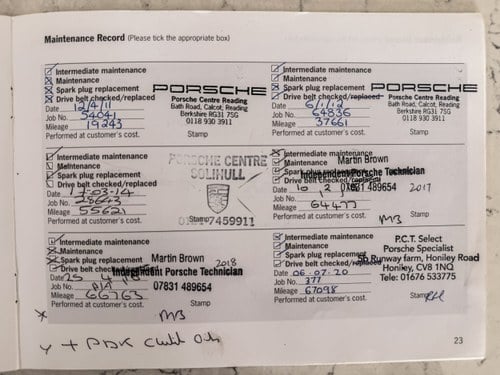 Maintenance Record (Please tick the appropriate box)
Intermediate maintenance
Maintenance
Spark plug replacement
Drive belt checked/replaced
Date 12/4/11
Job No. 54041
Mileage 19243
Performed at customer's cost.
PORSCHE
Porsche Centre Reading
Bath Road, Calcot, Reading
Berkshire RG31 7SG
0118 930 3911
Stamp
Intermediate maintenance
Maintenance
Spark plug replacement
Drive belt checked/replaced
Date 6/1/12
Job No. 64836
Mileage
Performed at customer's cost.
PORSCHE
Porsche Centre Reading
Bath Road, Calcot, Reading
Berkshire RG31 7SG
0118 930 3911
Stamp
Intermediate maintenance
Maintenance
Spark plug replacement
Drive belt checked/replaced
Date 17-03-14
Job No. 28643
Mileage 55621
Performed at customer's cost.
PORSCHE CENTRE
SOLIHULL
Stamp
7459911
Intermediate maintenance
Maintenance
Spark plug replacement
Drive belt checked/replaced
Date 10 2 2017
Job No.
Mileage 64477
Performed at customer's cost.
Martin Brown
Independent Porsche Technician
07831 489654
Stamp
MB
Intermediate maintenance
Maintenance
Spark plug replacement
Drive belt checked/replaced
Date 25 4 18
Job No. N/A
Mileage 66763
Performed at customer's cost.
Martin Brown 2018
Independent Porsche Technician
07831 489654
Stamp
MB
Intermediate maintenance
Maintenance
Spark plug replacement
Drive belt checked/replaced
Date 06-07-20
Job No. 377
Mileage 67098
Performed at customer's cost.
P.C.T. Select
Porsche Specialist
5b Runway farm, Honiley Road
Honiley, CV8 1NQ
Tele: 01676 533775
Stamp
+ PDK Clutch Oil
23